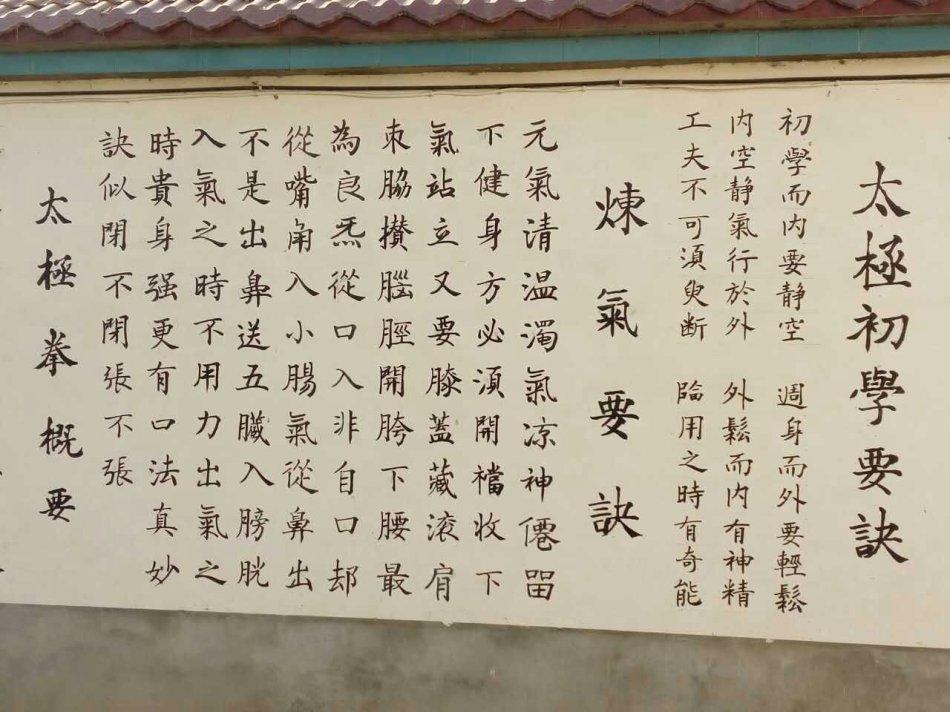 太極初學要訣
初學而內要靜空 週身而外要輕鬆
內空靜氣行於外 外鬆而內有神精
工夫不可須臾斷 臨用之時有奇能
煉氣要訣
元氣清温濁氣凉神僊畱
下健身方必須開襠收下
氣站立又要膝蓋藏滚肩
束脇攢腦脛開胯下腰最
為良炁從口入非自口却
從嘴角入小腸氣從鼻出
不是出鼻送五臟入膀胱
入氣之時不用力出氣之
時貴身强更有口法真妙
訣似閉不閉張不張
太極拳概要